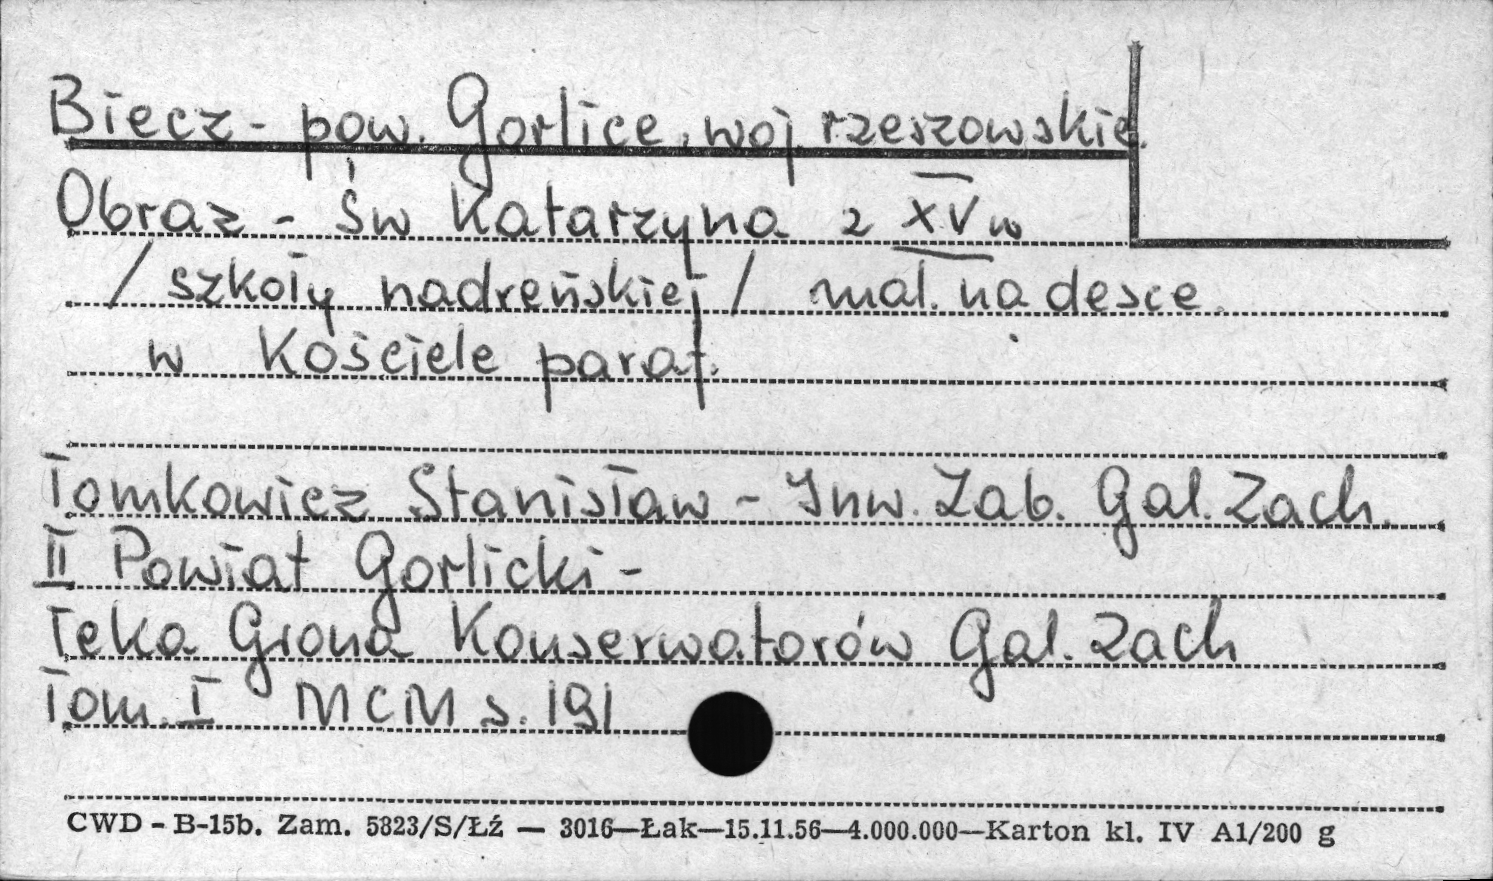 Biecz - pow. Gorlice, woj. rzeszowskie.
Obraz - św Katarzyna z XV w
/ szkoły nadreńskiej / mal. na desce.
w Kościele paraf.
Tomkowicz Stanisław - Inw. Zab. Gal. Zach.
II Powiat Gorlicki -
Teka Grona Konserwatorów Gal. Zach
Tom. I MCM s. 191
CWD - B-15b. Zam. 5823/S/Łź — 3016—Łak—15.11.56—4.000.000—Karton kl. IV A1/200 g